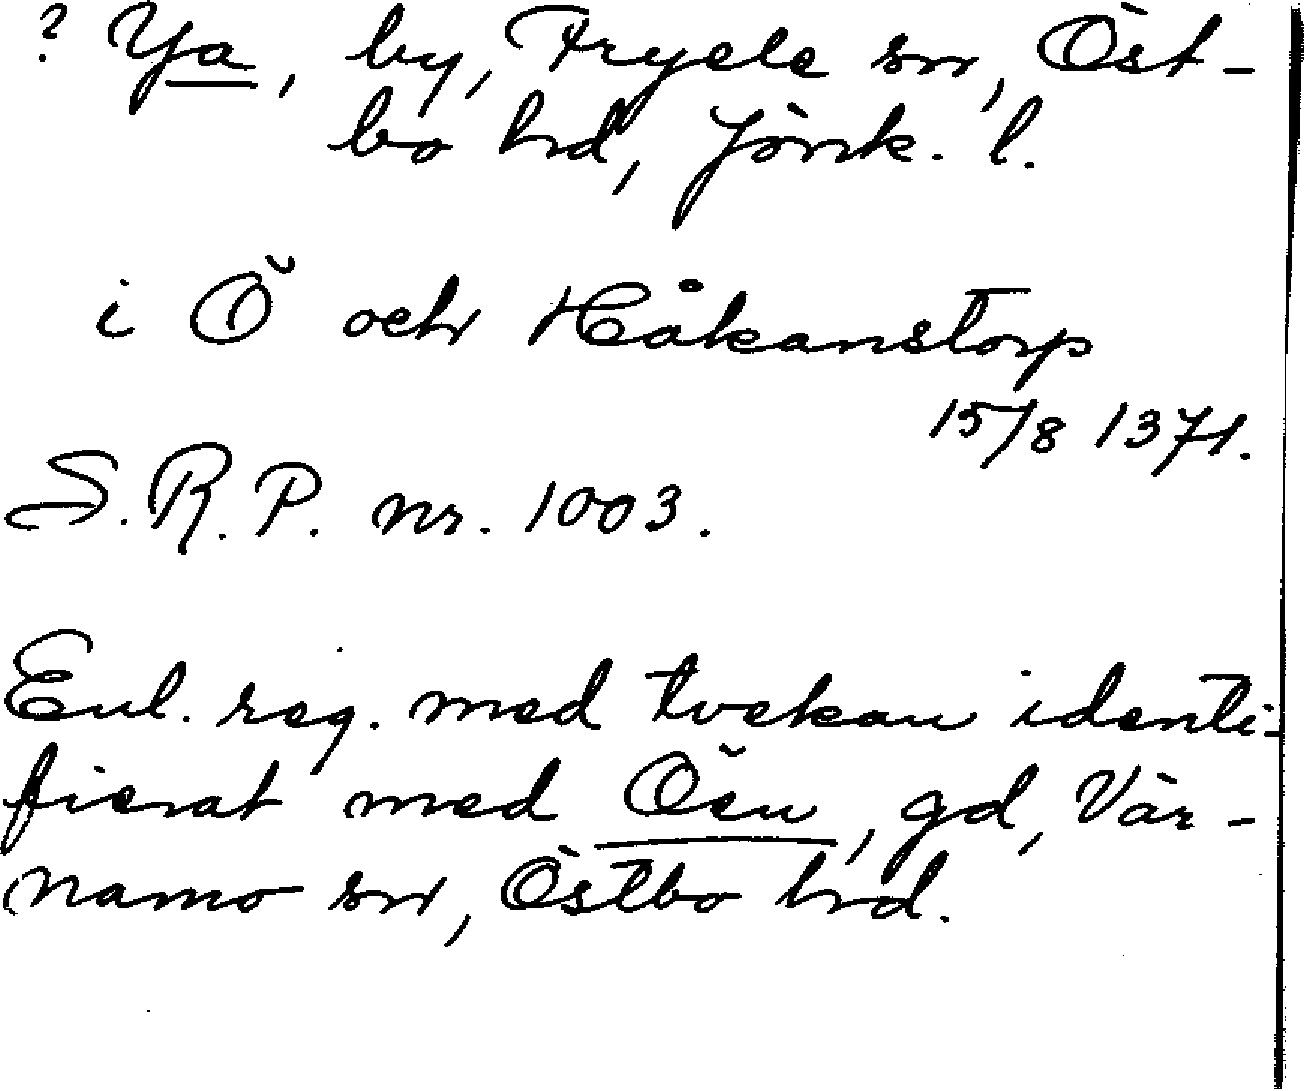 ? Ya, by, Tryele sn, Öst-
bo hd, Jönk. l.
i Ö och Håkanstorp
15/8 1371.
S.R.P. nr. 1003.
Enl. reg. med tvekan identi-
fierat med Ön, gd, Vär-
namo sn, Östbo hd.